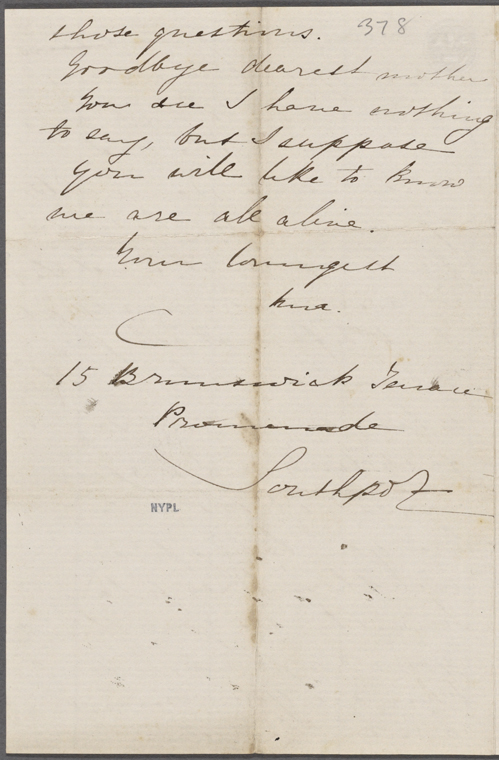 those questions. 378
Goodbye dearest mother
You see I have nothing
to say, but I suppose
you will like to know
we are all alive.
Your lovingest
Una.
15 Brunswick Terrace
Promenade
Southport
NYPL